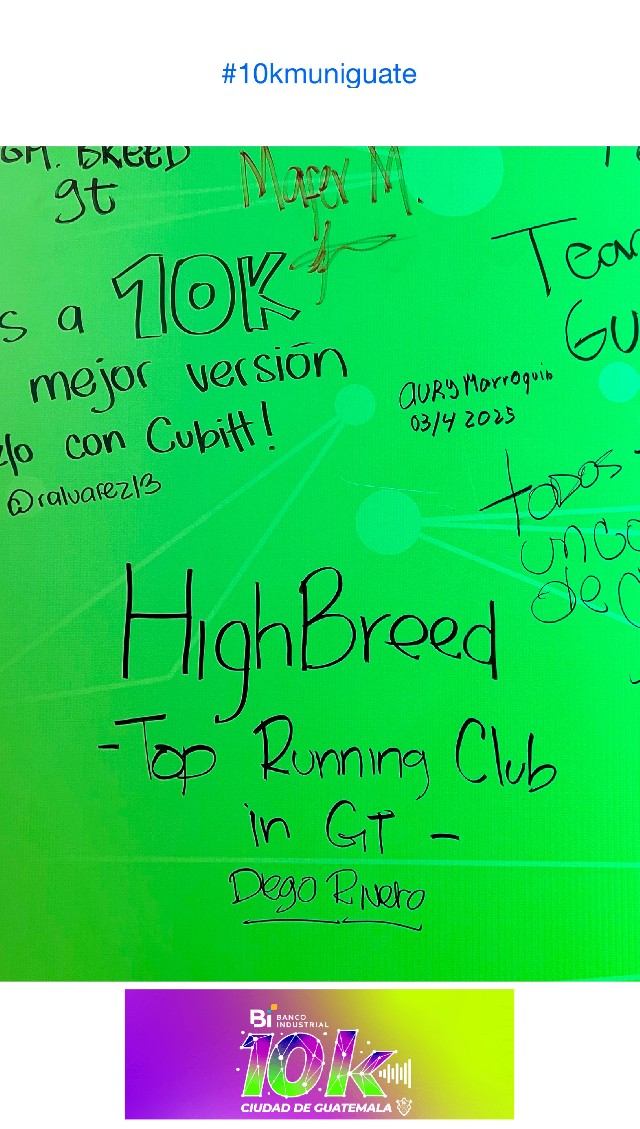 #10kmuniguate
gt
Mafer M.
s a 10K
mejor versión
con Cubitt!
@ralvarez13
Tea
Gu
AURY Marroquin
03/4 2025
todos
de
HighBreed
-Top Running Club
in GT -
Diego Rivero
Bi BANCO
INDUSTRIAL
10k
CIUDAD DE GUATEMALA